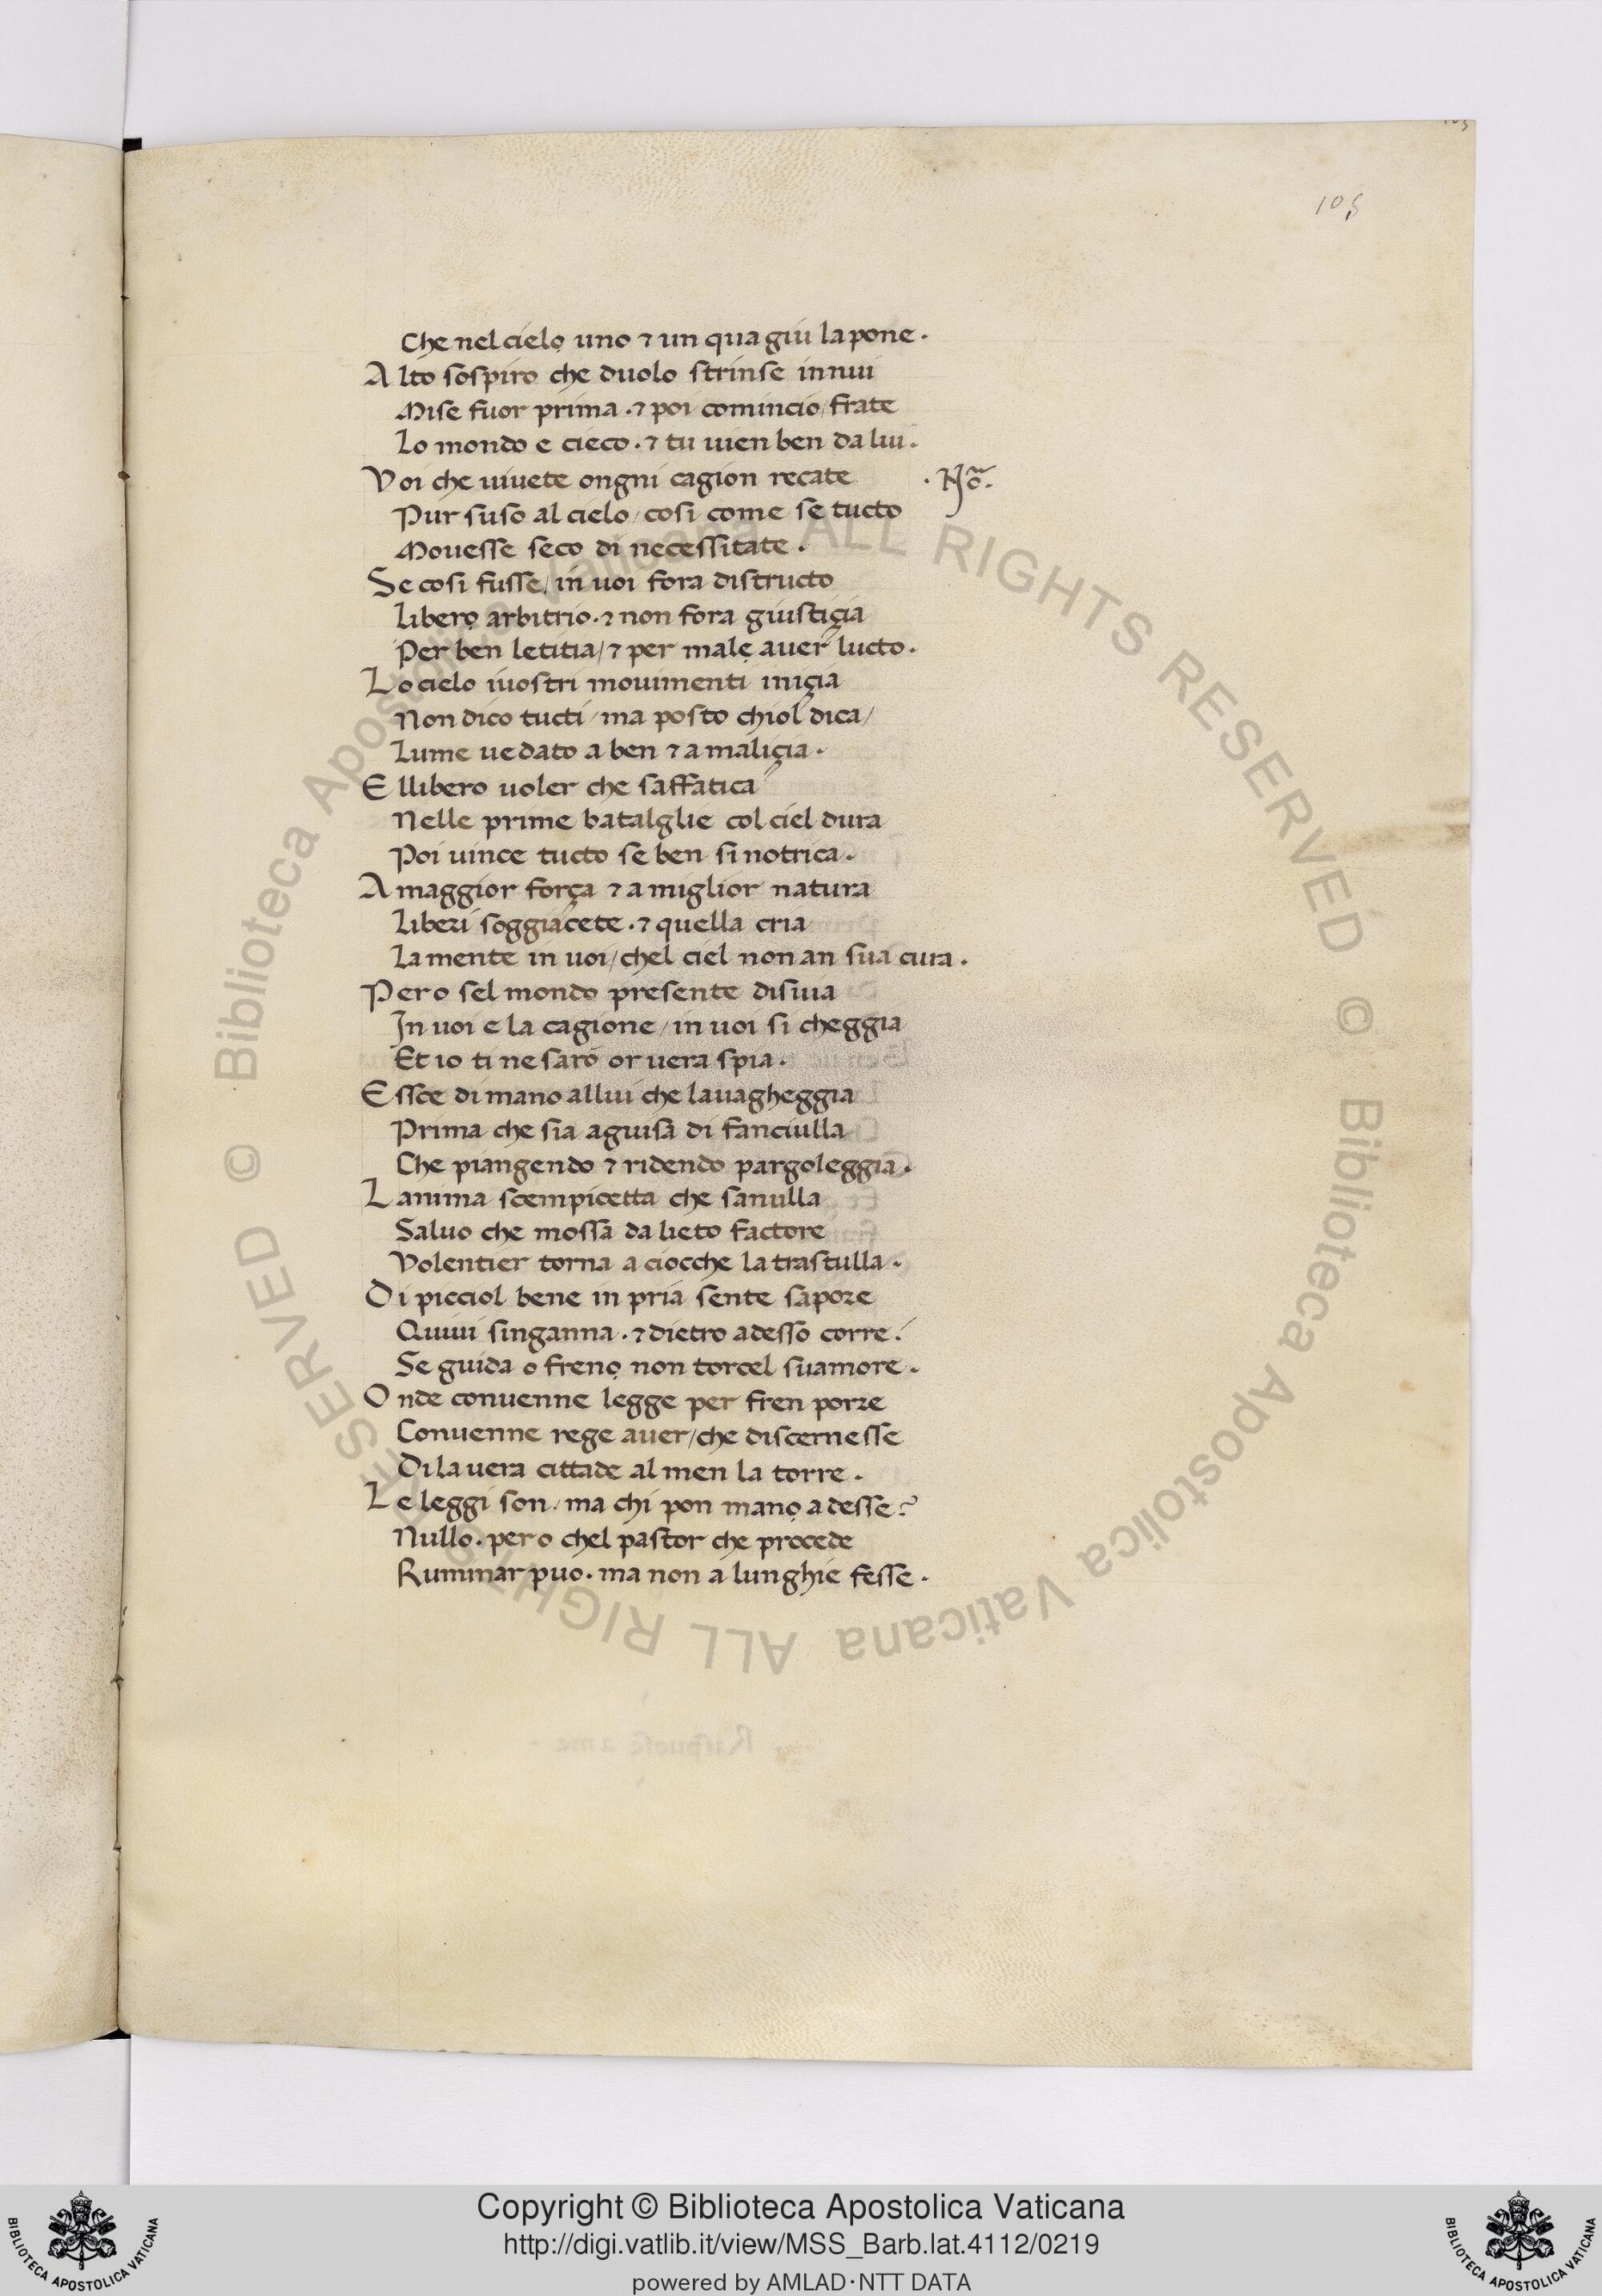 105
Che nel cielọ uno ⁊ un qua giu la pone .
Alto sospiro che duolo strinse innui
Mise fuor prima . ⁊ poi comincio / frate
Lo mondo e cieco . ⁊ tu uien ben da lui .
Voi che uiuete ongni cagion recate . No͂.
Pur suso al cielo / cosi come se tucto
Mouesse seco di necessitate .
Se cosi fusse / in uoi fora distructo
Liberọ arbitrio . ⁊ non fora giustiçia
Per ben letitia / ⁊ per malẹ auer lucto .
Lo cielo iuostri mouimenti iniçia
Non dico tucti / ma posto chiol dica /
Lume ue dato a ben ⁊ a maliçia .
E llibero uoler che saffatica
Nelle prime batalglie col ciel dura
Poi uince tucto se ben si notrica .
A maggior força ⁊ a miglior natura
Liberi soggiacete . ⁊ quella cria
La mente in uoi / chel ciel non an sua cura .
Pero sel mondo presente disuia
In uoi e la cagione / in uoi si cheggia
Et io ti ne saro or uera spia .
Essce di mano allui che lauagheggia
Prima che sia aguisa di fanciulla
Che piangendo ⁊ ridendo pargoleggia .
Lanima scempicetta che sanulla
Saluo che mossa da lieto factore
Volentier torna a ciocche la trastulla .
Di picciol bene in pria sente sapore
Quiui singanna . ⁊ dietro adesso corre .
Se guida o frenọ non torcel suamore .
Onde conuenne legge per fren porre
Conuenne rege auer / che discernesse
Di la uera cittade al men la torre .
Le leggi son / ma chi pon manọ adesse ?
Nullo . pero chel pastor che procede
Ruminar puo . ma non a lunghie fesse .
© Biblioteca Apostolica Vaticana ALL RIGHTS RESERVED
© Biblioteca Apostolica Vaticana ALL RIGHTS RESERVED
Copyright © Biblioteca Apostolica Vaticana
http://digi.vatlib.it/view/MSS_Barb.lat.4112/0219
powered by AMLAD·NTT DATA
BIBLIOTECA APOSTOLICA VATICANA
BIBLIOTECA APOSTOLICA VATICANA